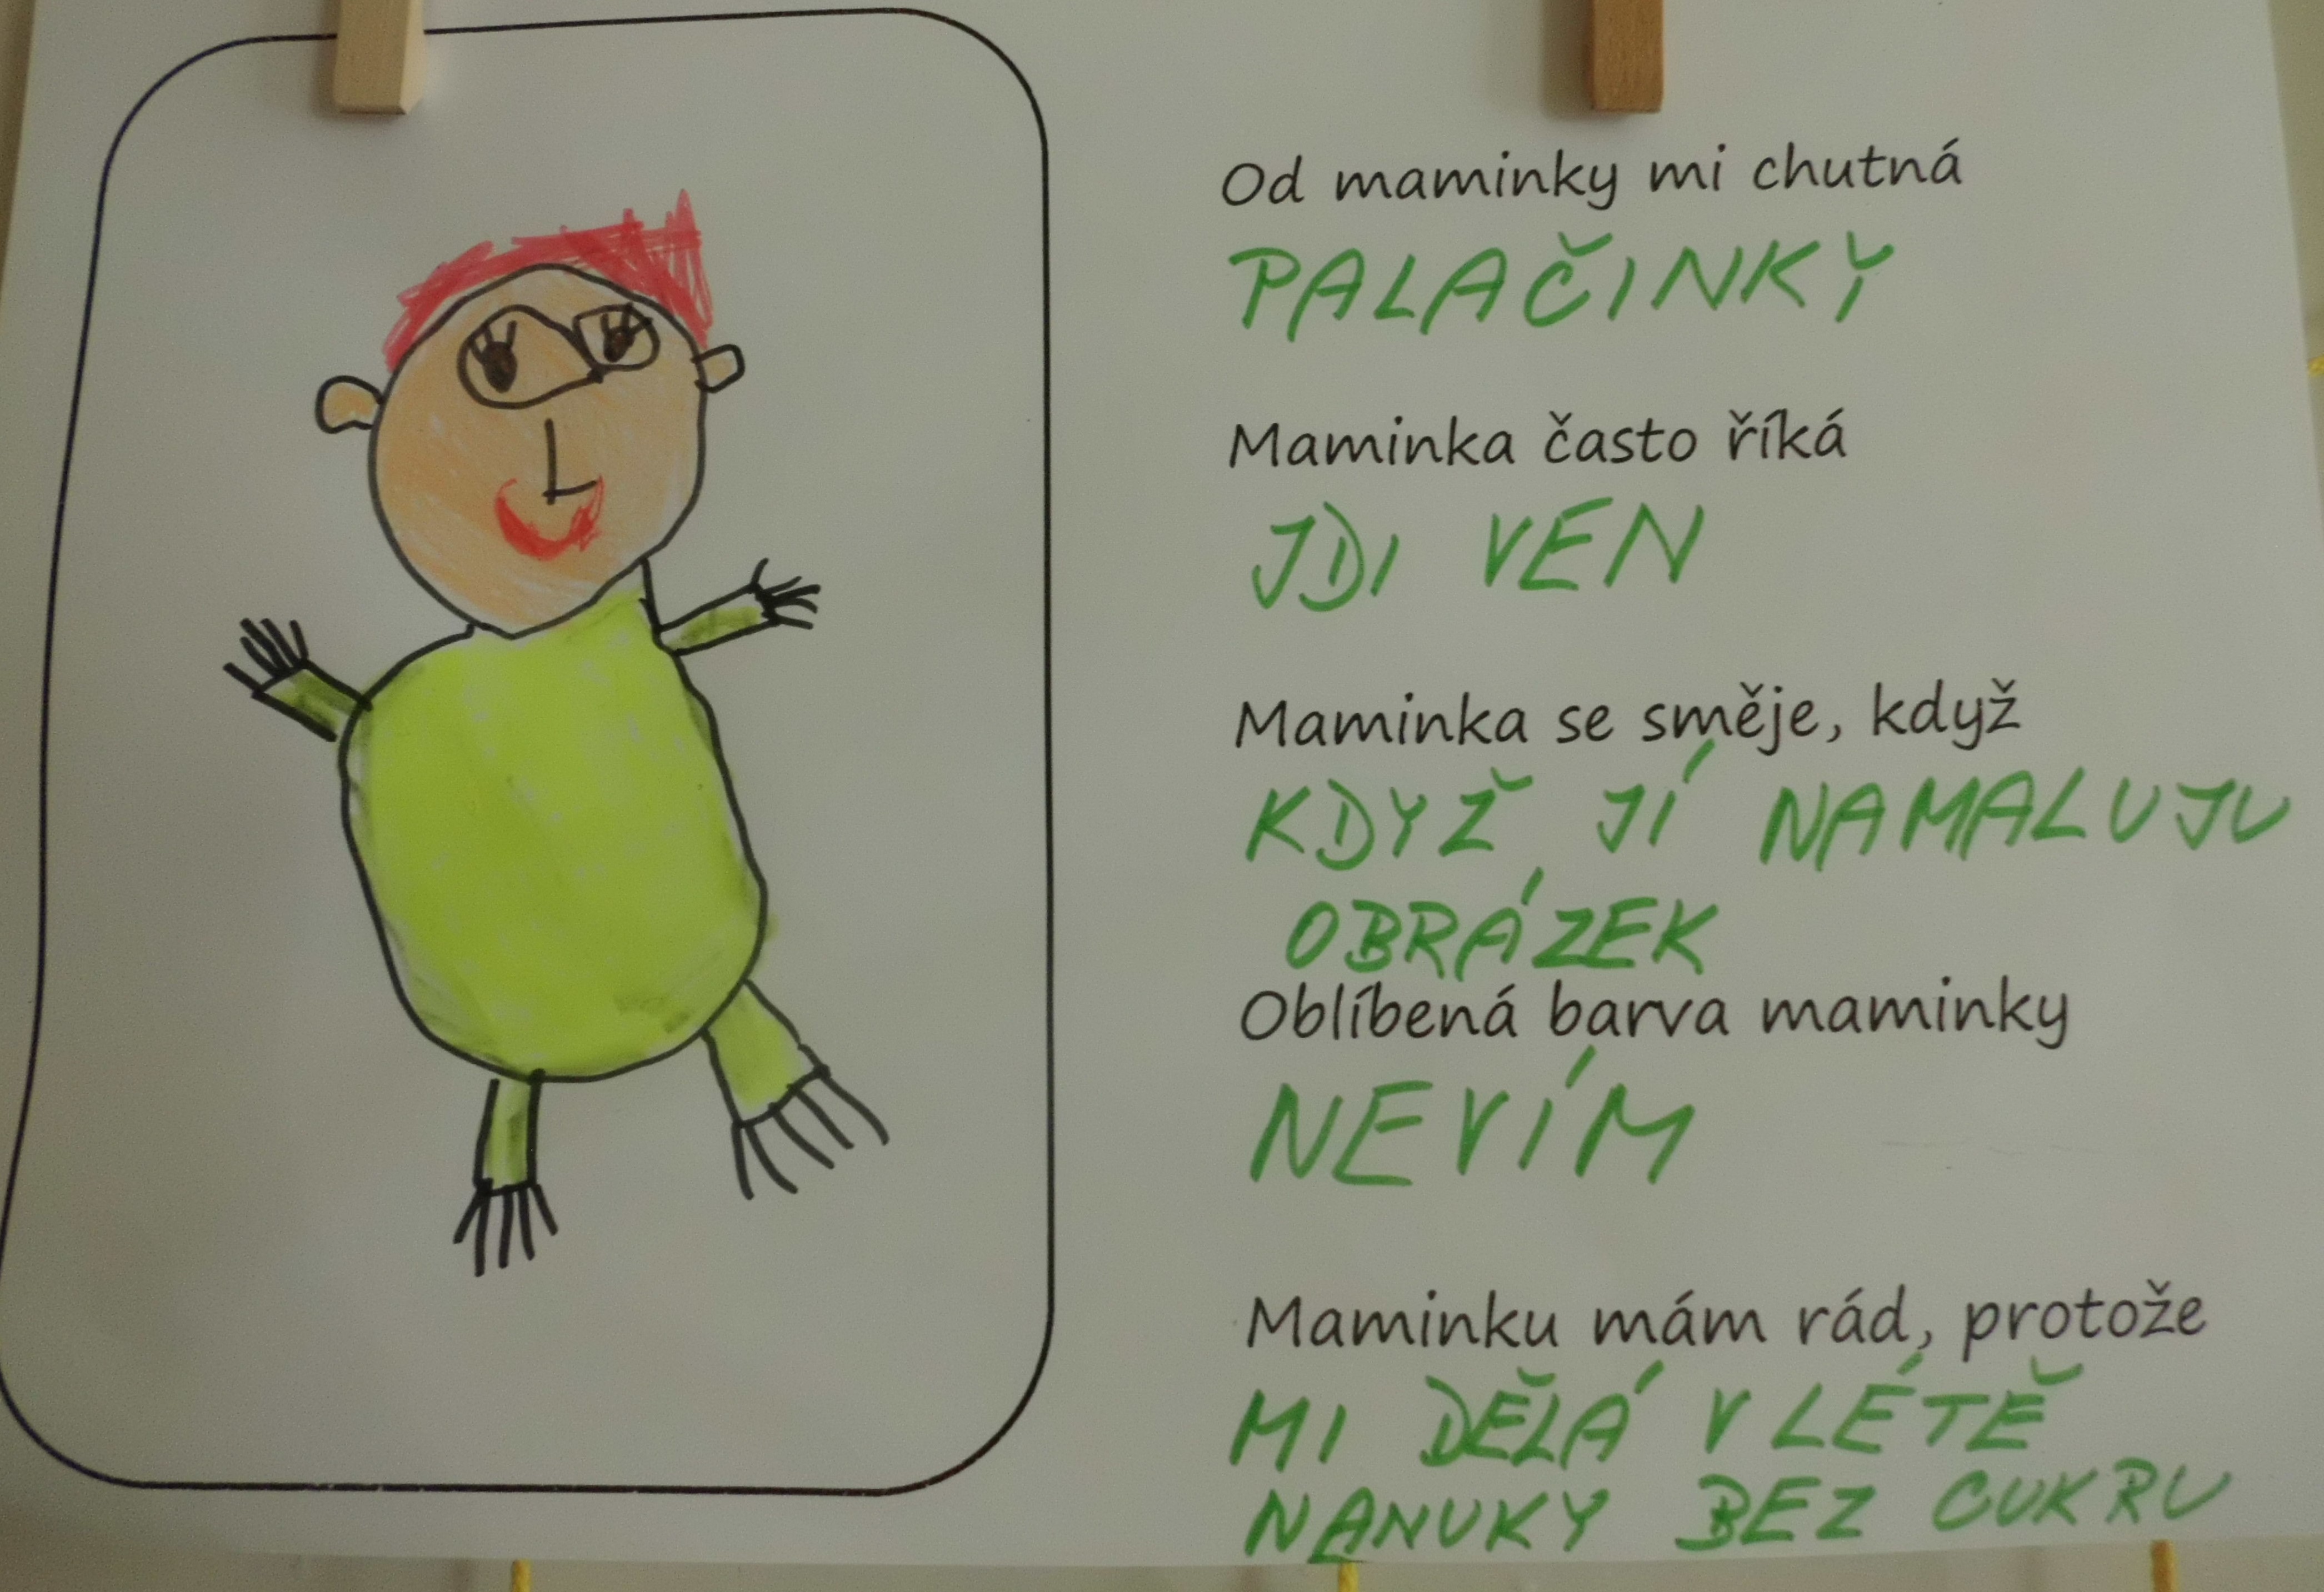 Od maminky mi chutná
PALAČINKY̌
Maminka často říká
JDI VEN
Maminka se směje, když
KDYŽ JÍ NAMALUJU
OBRÁZEK
Oblíbená barva maminky
NEVÍM
Maminku mám rád, protože
MI DĚLÁ V LÉTĚ
NANUKY BEZ CUKRU